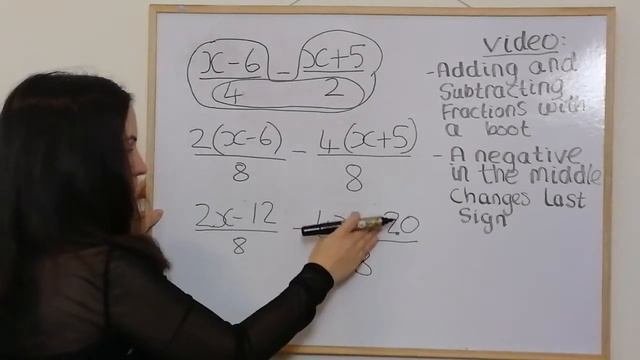 x-6 - x+5
4 2
2(x-6) - 4(x+5)
8 8
2x-12 - 20
8 8
video:
-Adding and
Subtracting
Fractions with
a boot
- A negative
in the middle
Changes Last
Sign